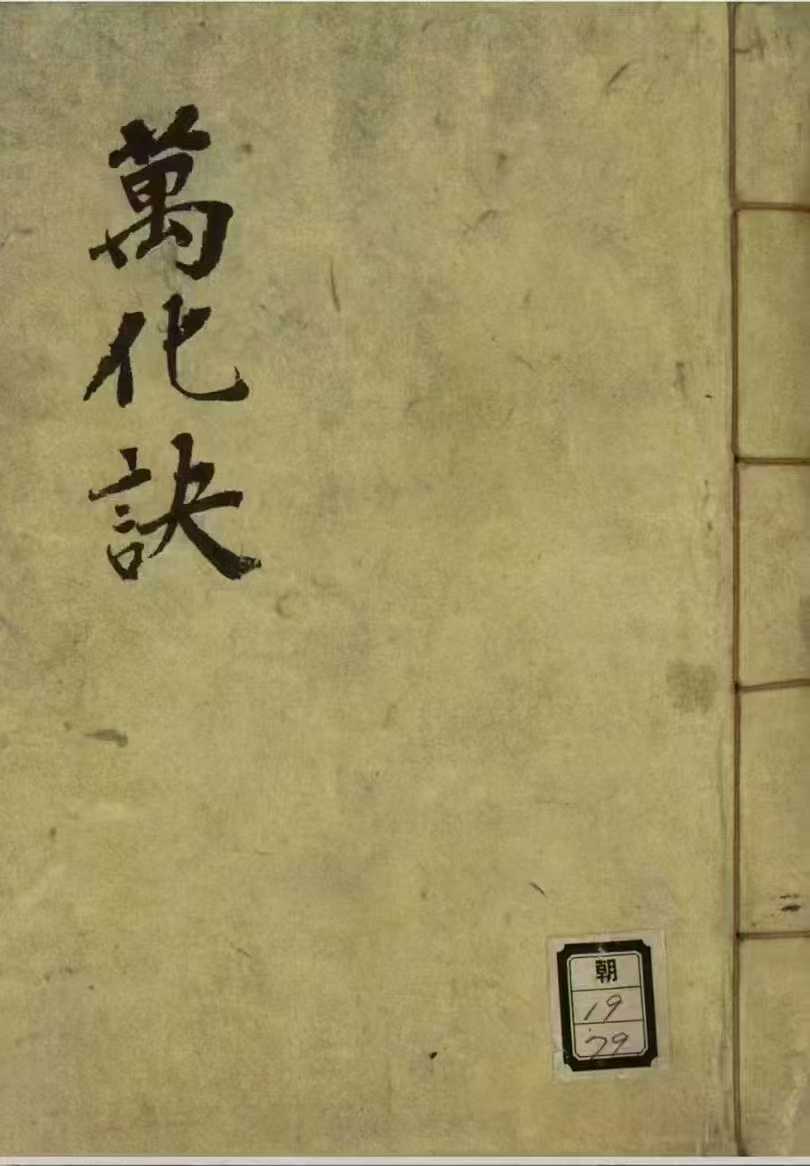 萬化訣
朝
19
79